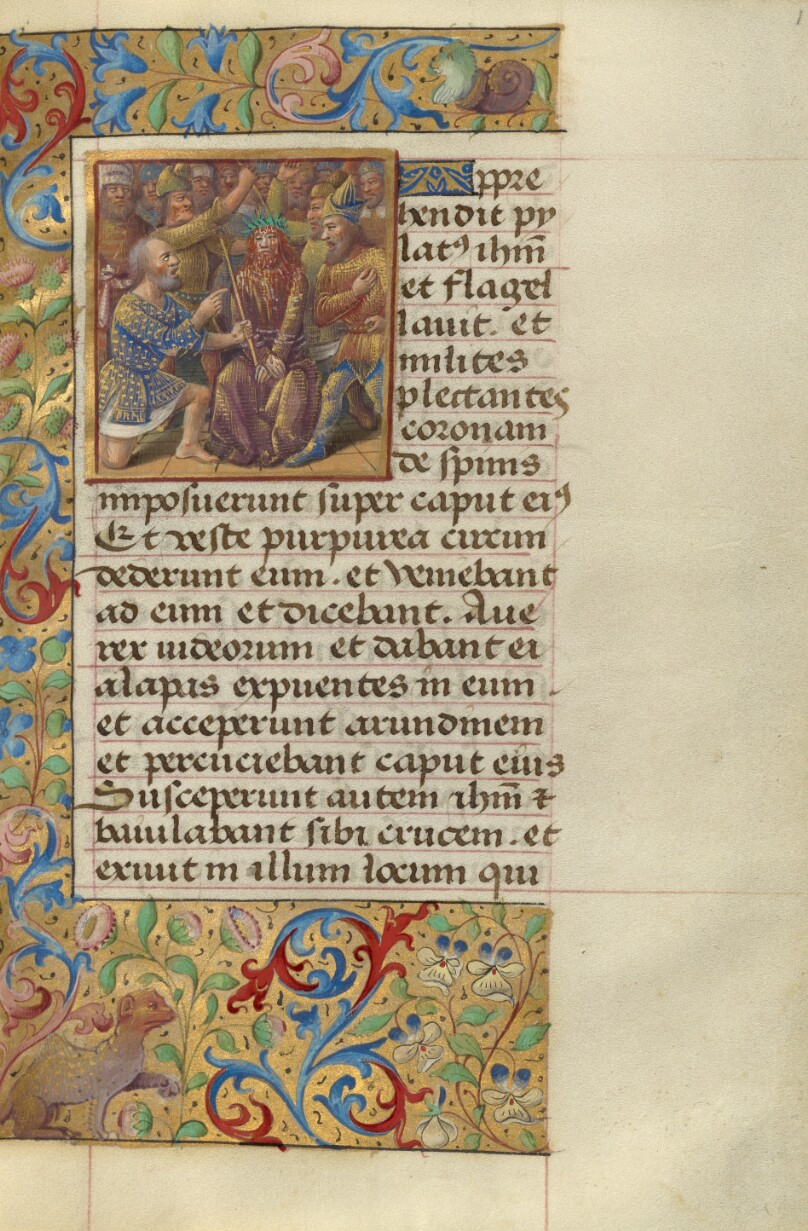 Appre
hendit py
latꝰ ihm̅
et flagel
lauit. et
milites
plectantes
coronam
de spinis
imposuerunt super caput eiꝰ
Et veste purpurea circun
dederunt eum. et veniebant
ad eum et dicebant. Aue
rex iudeorum et dabant ei
alapas expuentes in eum.
et acceperunt arundinem
et percuciebant caput eius
Susceperunt autem ihm̅ ⁊
baiulabant sibi crucem. et
exiuit in illum locum qui